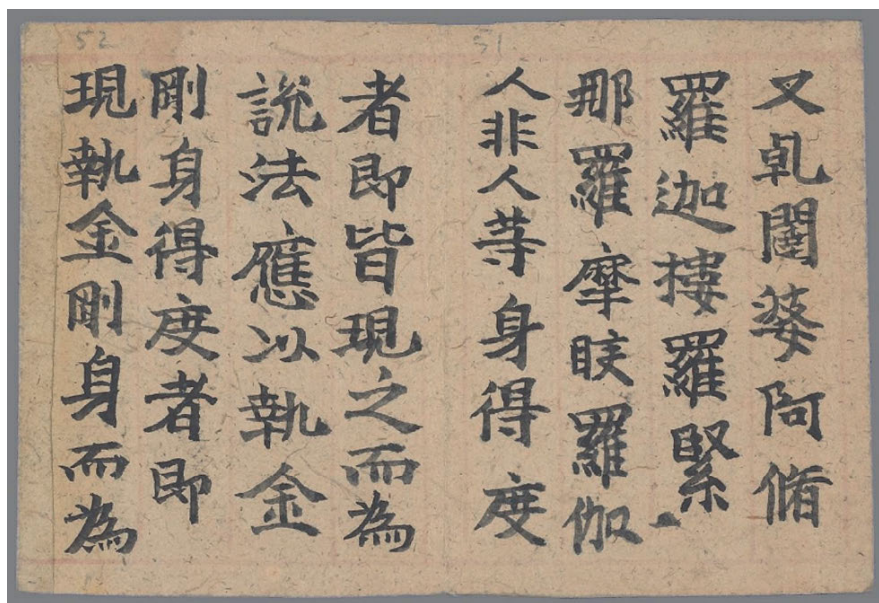 又乹闥婆阿脩
羅迦樓羅緊
那羅摩睺羅伽
人非人等身得度
者即皆現之而為
說法應以執金
剛身得度者即
現執金剛身而為
51
52